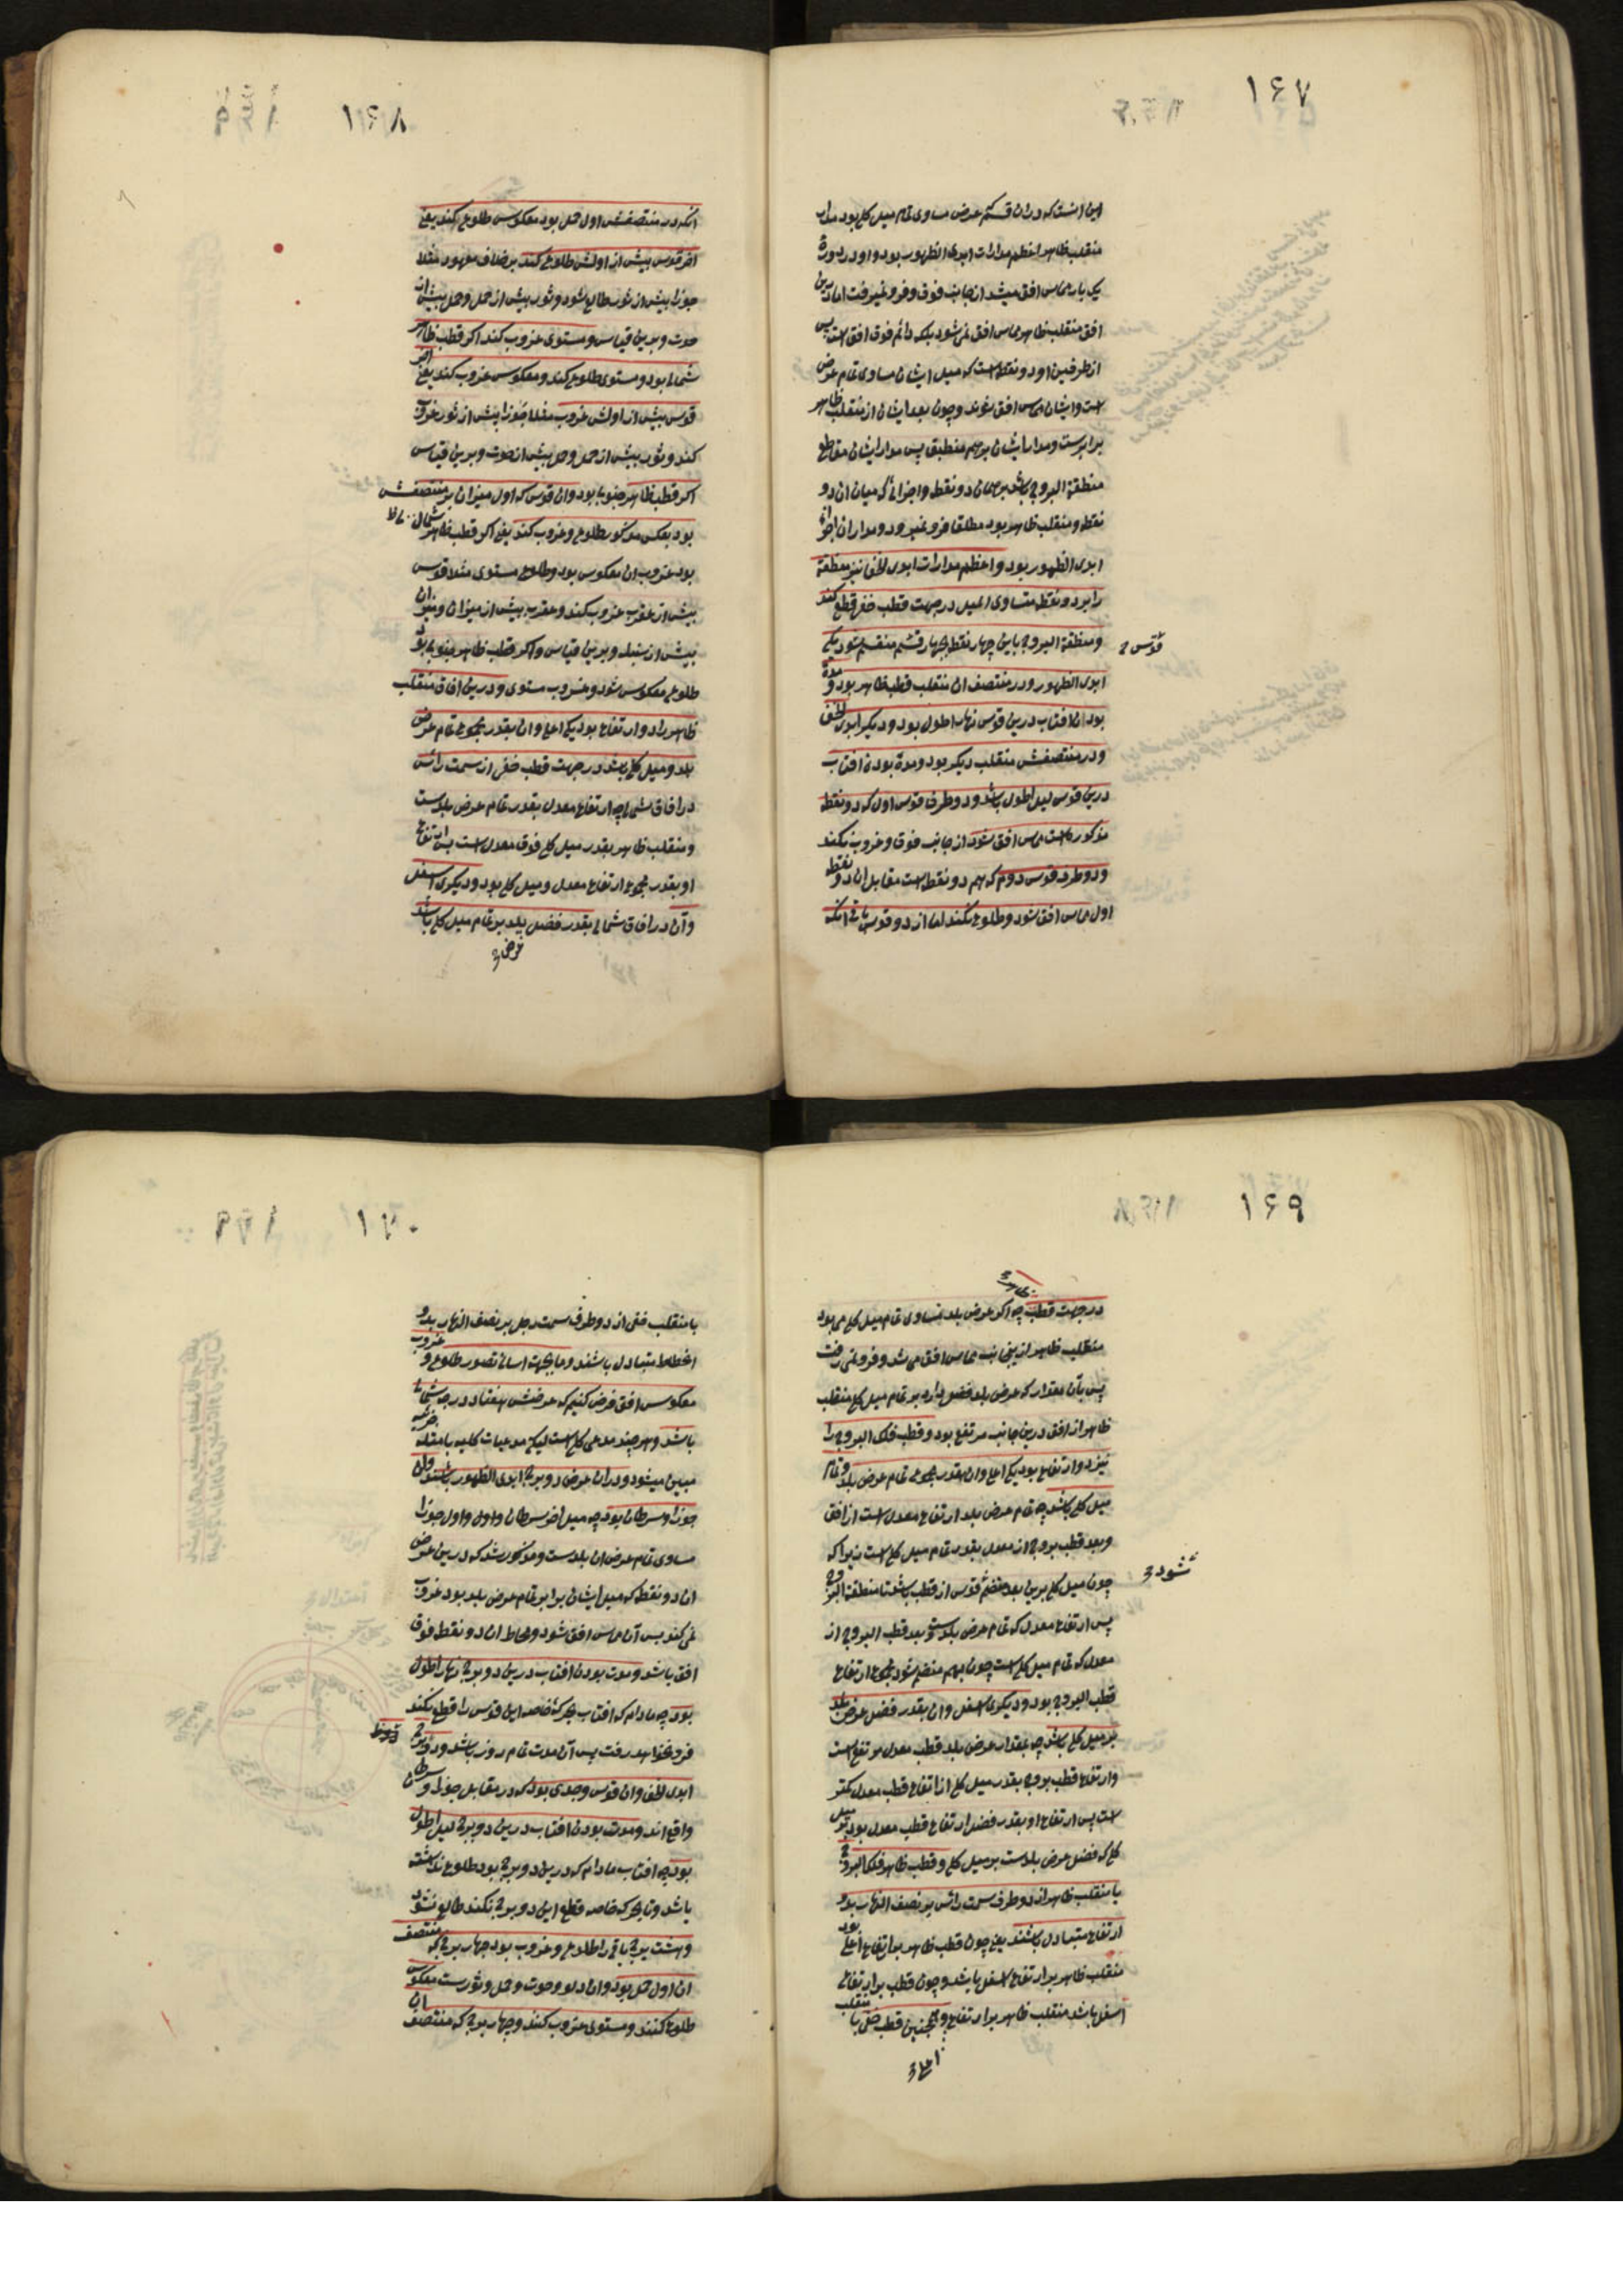 ۱۶۷
این است که در ان قسم عرض مساوی تمام میل کلی بود مدار
منقلب ظاهر اعظم مدارات ابدی الظهور بود و او در دورهٔ
یک بار مماس افق میشد از جانب فوق و فرو نمیرفت اما درین
افق منقلب ظاهر مماس افق نمی شود بلکه دائم فوق افق است پس
از طرفین او دو نقطه است که میل ایشان مساوی تمام عرض
است و ایشان مماس افق شوند و چون بعد ایشان از منقلب ظاهر
برابرست و مدار ایشان بر هم منطبق پس مدار ایشان مقاطع
منطقة البروج باشد بر همان دو نقطه و اجزائی که میان ان دو
نقطه و منقلب ظاهر بود مطلقا فرو نمیرود و مدار ان اجزا
ابدی الظهور بود و اعظم مدارات ابدی الخفا نیز منطقة
را بر دو نقطه متساوی المیل در جهت قطب خفی قطع کند
و منطقة البروج باین چهار نقطه بچهار قسم منقسم شود یکی
قوس
ابدی الظهور و در منتصف ان منقلب قطب ظاهر بود و مدة
بودن افتاب درین قوس نهار اطول بود و دیگر ابدی الخفا
و در منتصفش منقلب دیگر بود و مدة بودن افتاب
درین قوس لیل اطول باشد و دو طرف قوس اول که دو نقطه
مذکوره است مماس افق شود از جانب فوق و غروب نکند
و دو طرف قوس دوم که هم دو نقطه است مقابل ان دو نقطه
اول مماس افق شود و طلوع نکند اما از دو قوس باقی انکه
۱۶۸
انکه در منتصفش اول حمل بود معکوس طلوع کند یعنی
اخر قوس بیش از اولش طلوع کند بر خلاف معهود مثلا
جوزا بیش از ثور طالع شود و ثور بیش از حمل و حمل بیش از
حوت و برین قیاس و مستوی غروب کند اکر قطب ظاهر
شمالی بود و مستوی طلوع کند و معکوس غروب کند یعنی اخر
قوس بیش از اولش غروب مثلا جوزا بیش از ثور غروب
کند و ثور بیش از حمل و حمل بیش از حوت و برین قیاس
اکر قطب ظاهر جنوبی بود و ان قوس که اول میزان بر منتصفش
بود بعکس مذکور طلوع و غروب کند یعنی اکر قطب ظاهر شمالی
بود غروب ان معکوس بود و طلوع مستوی مثلا قوس
بیش از عقرب غروب کند و عقرب بیش از میزان و میزان
بیش از سنبله و برین قیاس و اکر قطب ظاهر جنوبی بود
طلوع معکوس شود و غروب مستوی و درین افاق منقلب
ظاهر را دو ارتفاع بود یکی اعلی و ان بقدر مجموع تمام عرض
بلد و میل کلی باشد در جهت قطب خفی از سمت راس
در افاق شمالی چه ارتفاع معدل بقدر تمام عرض بلدست
و منقلب ظاهر بقدر میل کلی فوق معدل است پس ارتفاع
او بقدر مجموع ارتفاع معدل و میل کلی بود و دیگری اسفل
و آن در افاق شمالی بقدر فضل بلد بر تمام میل کلی باشد
عرض
۱۶۹
ظاهر
در جهت قطب چه اکر عرض بلد مساوی تمام میل کلی می بود
منقلب ظاهر ازین جانب مماس افق می شد و فرو نمی رفت
پس بآن مقدار که عرض بلد فضل دارد بر تمام میل کلی منقلب
ظاهر از افق درین جانب مرتفع بود و قطب فلک البروج را
نیز دو ارتفاع بود یکی اعلی و ان بقدر مجموع تمام عرض بلد و تمام
میل کلی باشد چه تمام عرض بلد ارتفاع معدل است از افق
و بعد قطب بروج از معدل بقدر تمام میل کلی است زیرا که
چون میل کلی برین بعد منضم قوس از قطب باشد تا منطقة البروج
شود
پس ارتفاع معدل که تمام عرض بلدست و بعد قطب البروج از
معدل که تمام میل کلی است چون بهم منضم شود مجموع ارتفاع
قطب البروج بود و دیگری اسفل و ان بقدر فضل عرض بلد
بر میل کلی باشد چه بمقدار عرض بلد قطب معدل مرتفع است
و ارتفاع قطب بروج بقدر میل کلی از ارتفاع قطب معدل کمتر
است پس ارتفاع او بقدر فضل ارتفاع قطب معدل بود بر میل
کلی که فضل عرض بلدست بر میل کلی و قطب ظاهر فلک البروج
با منقلب ظاهر از دو طرف سمت راس بر نصف النهار بدو
ارتفاع متبادل باشند یعنی چون قطب ظاهر بر ارتفاع اعلی بود
منقلب ظاهر بر ارتفاع اسفل باشد و چون قطب بر ارتفاع
اسفل باشد منقلب ظاهر بر ارتفاع و همچنین قطب خفی با منقلب
اعلی
۱۷۰
با منقلب خفی از دو طرف سمت رجل بر نصف النهار بدو
انحطاط متبادل باشند و ما بجهت اسانی تصور طلوع و غروب
معکوس افق فرض کنیم که عرضش هفتاد درجه شمالی
باشد و هر چند مدعی کلی است لیکن مدعیات کلیه بامثله جزئیه
مبین میشود و در ان عرض دو برج ابدی الظهور باشند و ان
جوزا و سرطان بود چه میل اخر سرطان و اول جوزا
مساوی تمام عرض ان بلدست و مذکور شد که درین عرض
ان دو نقطه که میل ایشان برابر تمام عرض بلد بود غروب
نمی کند پس آن مماس افق شود و محاط ان دو نقطه فوق
افق باشد و مدت بودن افتاب درین دو برج نهار اطول
بود چه مادام که افتاب بحرکة خاصه این قوس را قطع نکند
فرو نخواهد رفت پس آن مدت تمام روز باشد و دو برج
ابدی الخفا و ان قوس و جدی بود که در مقابل جوزا و سرطان
واقع اند و مدت بودن افتاب درین دو برج لیل اطول
بود چه افتاب مادام که درین دو برج بود طلوع نداشته
باشد و تا بحرکة خاصه قطع این دو برج نکند طالع نشود
و هشت برج باقی را طلوع و غروب بود چهار برج که منتصف
ان اول حمل بود و ان دلو و حوت و حمل و ثورست معکوس
طلوع کنند و مستوی غروب کنند و چهار برج که منتصف ان